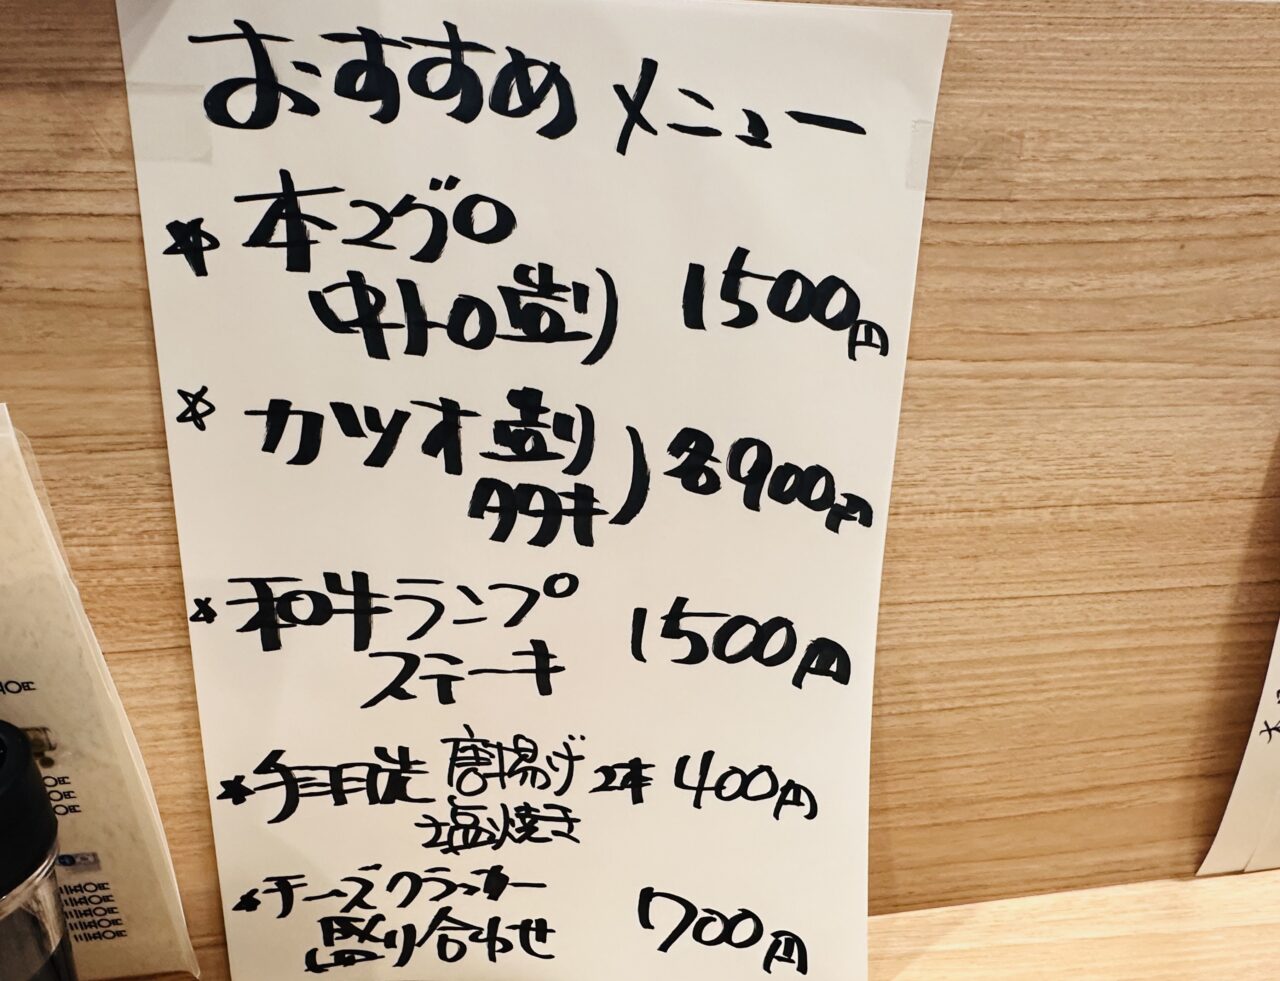 おすすめ メニュー
☆ 本マグロ
中トロ造り 1500円
☆ カツオ造り
タタキ ) 各900円
☆ 和牛ランプ
ステーキ 1500円
☆ 手羽先 唐揚げ 2本 400円
塩焼き
☆ チーズクラッカー
盛り合わせ 700円